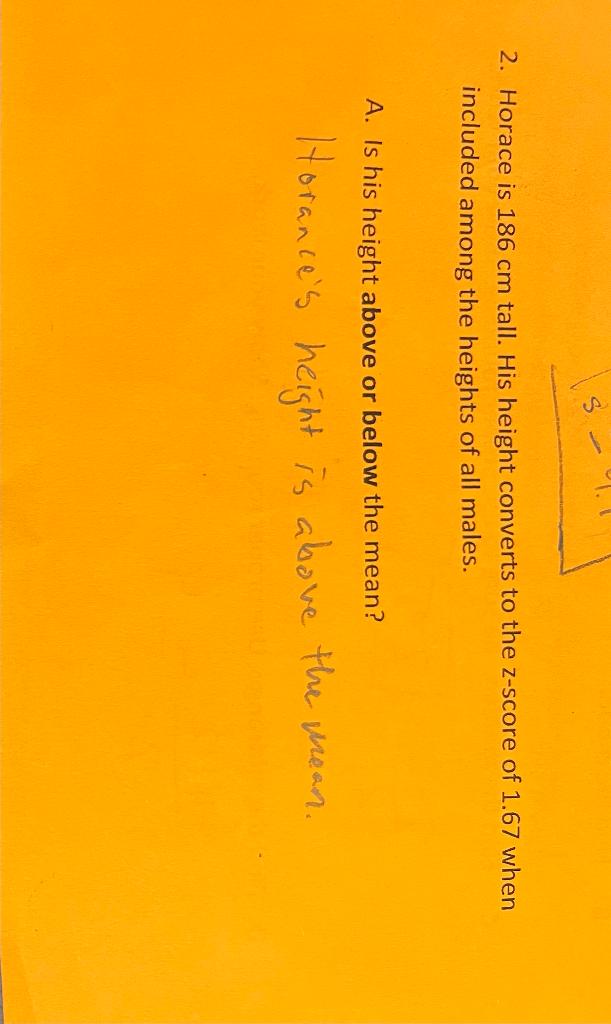 2. Horace is 186 cm tall. His height converts to the z-score of 1.67 when
included among the heights of all males.
A. Is his height above or below the mean?
Horance's height is above the mean.